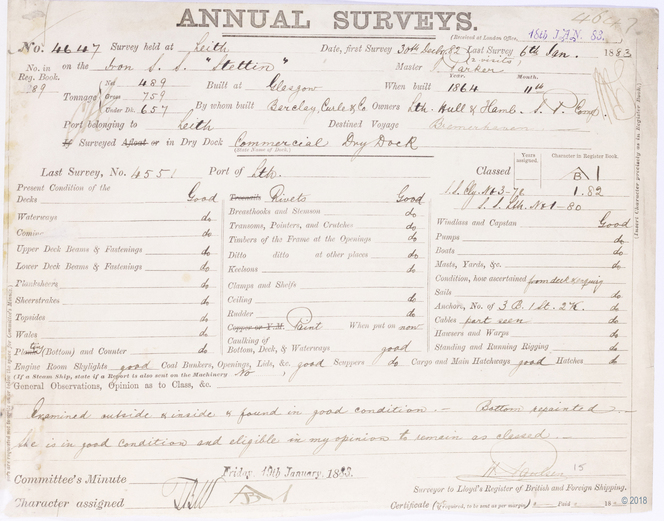 ANNUAL SURVEYS.
(Received at London Office, 18th JAN. 83.
No. 4647 Survey held at Leith Date, first Survey 30th Decbr 82 Last Survey 6th Jan. 1883
(2 visits)
No. in Reg. Book. on the Iron S. S. "Stettin" Master Parker
89
Year. Month.
Tonnage Net 489 Built at Glasgow When built 1864 11th
Gross 759
Under Dk. 657 By whom built Barclay, Curle & Co. Owners Lth. Hull & Hamb.
Port belonging to Leith Destined Voyage Bremerhaven
If Surveyed Afloat or in Dry Dock Commercial Dry Dock
(State Name of Dock.)
Last Survey, No. 4551 Port of Lth. Classed
Years assigned. Character in Register Book.
1.82
Present Condition of the
Decks Good
Waterways do
Comings do
Upper Deck Beams & Fastenings do
Lower Deck Beams & Fastenings do
Planksheers do
Sheerstrakes do
Topsides do
Wales do
(Bottom) and Counter do
Treenails Rivets Good
Breasthooks and Stemson do
Transoms, Pointers, and Crutches do
Timbers of the Frame at the Openings do
Ditto ditto at other places do
Keelsons do
Clamps and Shelfs do
Ceiling do
Rudder do
Copper or Y.M. Paint When put on now
Caulking of Bottom, Deck, & Waterways good
S.S. Lth. No1-80
Windlass and Capstan Good
Pumps do
Boats do
Masts, Yards, &c. do
Condition, how ascertained from deck & rigging
Sails do
Anchors, No. of 3 B. 1 St. 2 K. do
Cables part seen do
Hawsers and Warps do
Standing and Running Rigging do
Engine Room Skylights good Coal Bunkers, Openings, Lids, &c. good Scuppers do Cargo and Main Hatchways good Hatches do
(If a Steam Ship, state if a Report is also sent on the Machinery No
General Observations, Opinion as to Class, &c.
Examined outside & inside & found in good condition. - Bottom repainted -
She is in good condition and eligible in my opinion to remain as classed. -
15
Surveyor to Lloyd's Register of British and Foreign Shipping.
Committee's Minute Friday, 19th January, 1883.
Character assigned
Certificate (if required, to be sent as per margin)
(Insert Character precisely as in Register Book.)
© 2018